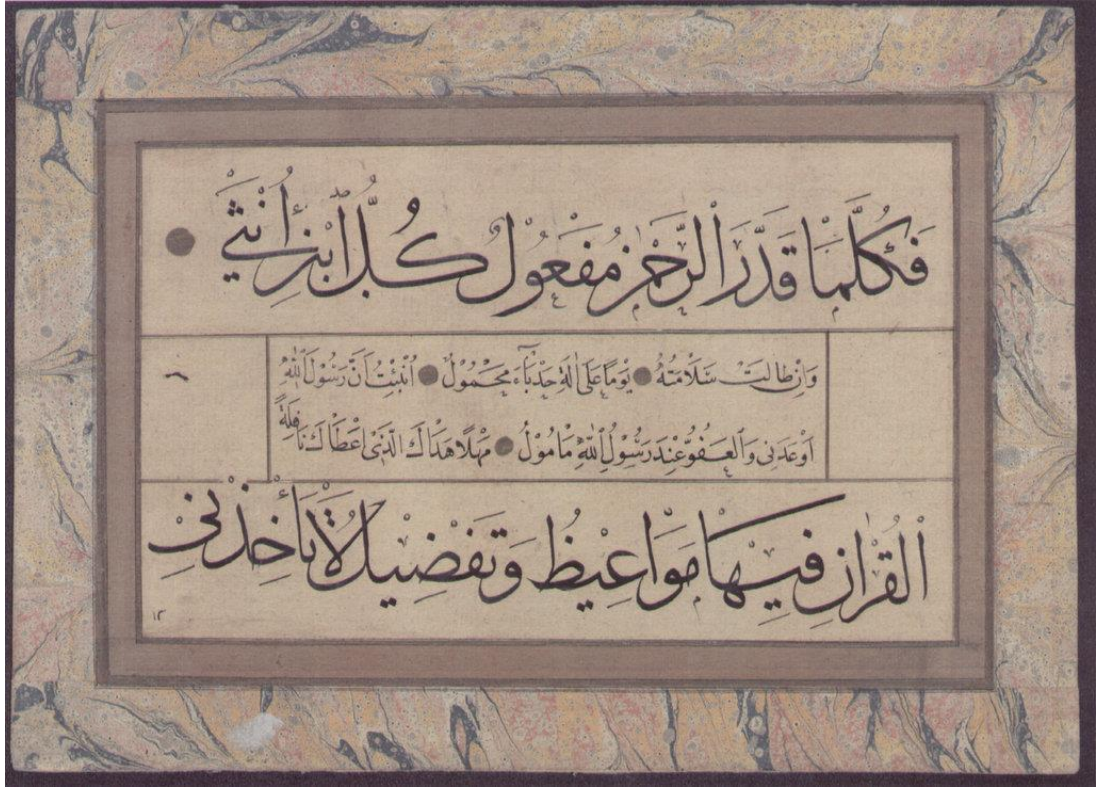 فَكُلَّمَا قَدَّرَ الرَّحْمٰنُ مَفْعُولٌ كُلُّ ابْنِ اُنْثٰى
وَاِنْ طَالَتْ سَلَامَتُهُ يَوْمًا عَلٰى اٰلَةٍ حَدْبَاءَ مَحْمُولٌ اُنْبِئْتُ اَنَّ رَسُولَ اللّٰهِ
اَوْعَدَنِى وَالْعَفُوُّ عِنْدَ رَسُولِ اللّٰهِ مَامُولٌ مَهْلًا هَدَاكَ الَّذِى اَعْطَاكَ نَافِلَةً
الْقُرْاٰنِ فِيهَا مَوَاعِيظٌ وَتَفْضِيلٌ لَا تَأْخُذَنِّى
١٢